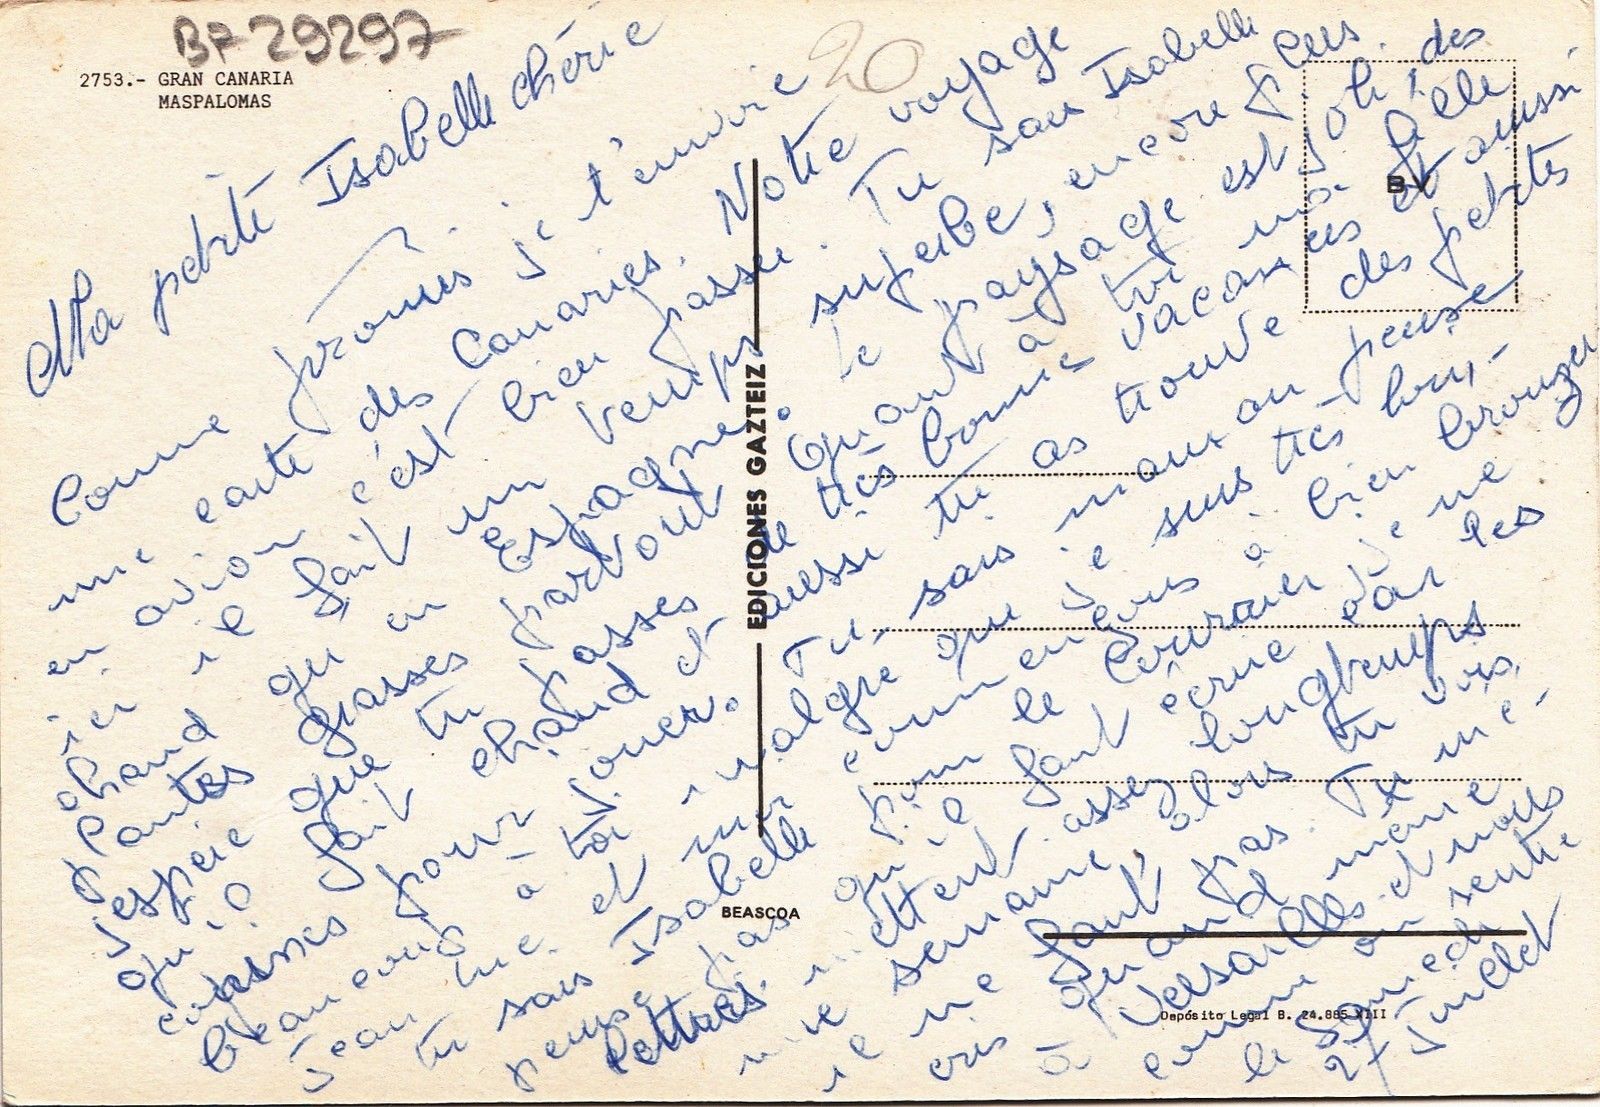 BF 29297
20
2753.- GRAN CANARIA
MASPALOMAS
Ma petite Isabelle chérie
Comme promis je t'envoie
une carte des Canaries. Notre voyage
en avion c'est bien passé. Tu sais Isabelle
ici il fait un temps superbe, encore plus
chaud qu'en Espagne. le paysage est joli, des
plantes grasses partout. Quant à toi ma fille
j'espère que tu passes de très bonnes vacances et aussi
qu'il fait chaud et aussi tu as trouvé des petites
copines pour jouer. Tu sais maman pense
beaucoup à toi malgré que je suis très loin,
Jean Luc et moi commençons à bien bronzer
tu sais Isabelle pour le courrier je ne
pense pas qu'il faut écrire car les
lettres mettent assez longtemps
une semaine, alors tu vois,
il ne faut pas. Tu mé-
cris quand même
à Versailles et nous
comme on rentre
le samedi
27 Juillet
B.V
EDICIONES GAZTEIZ
BEASCOA
Depósito Legal B. 24.885 XIII